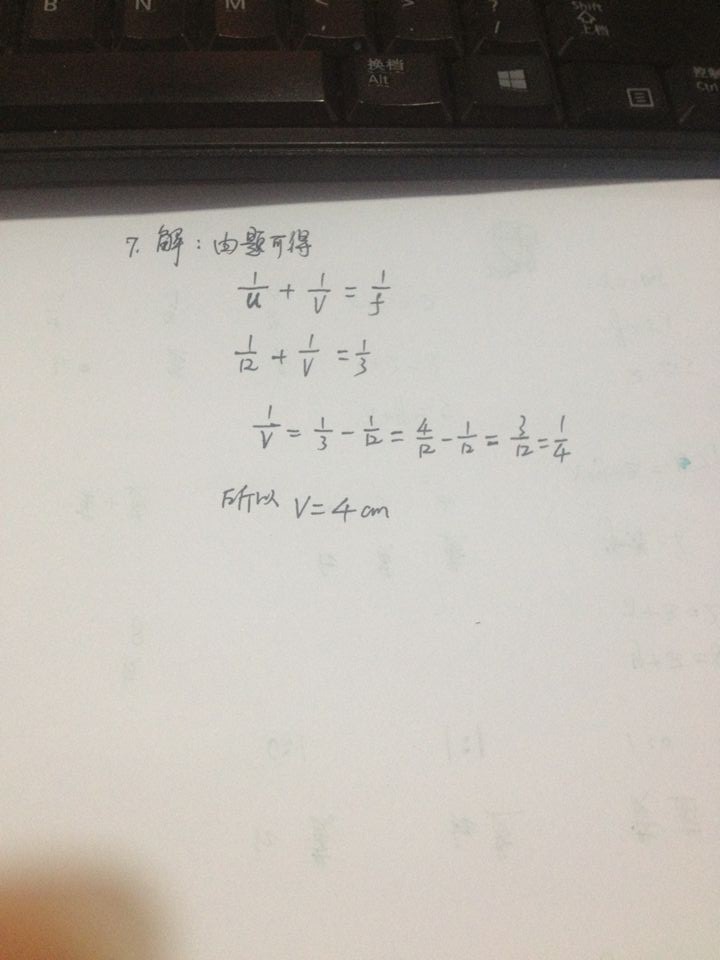 B N M < > ? Shift
/ 上档
换档
Alt
Ctrl
7. 解：由题可得
1/u + 1/V = 1/f
1/12 + 1/V = 1/3
1/V = 1/3 - 1/12 = 4/12 - 1/12 = 3/12 = 1/4
所以 V=4cm